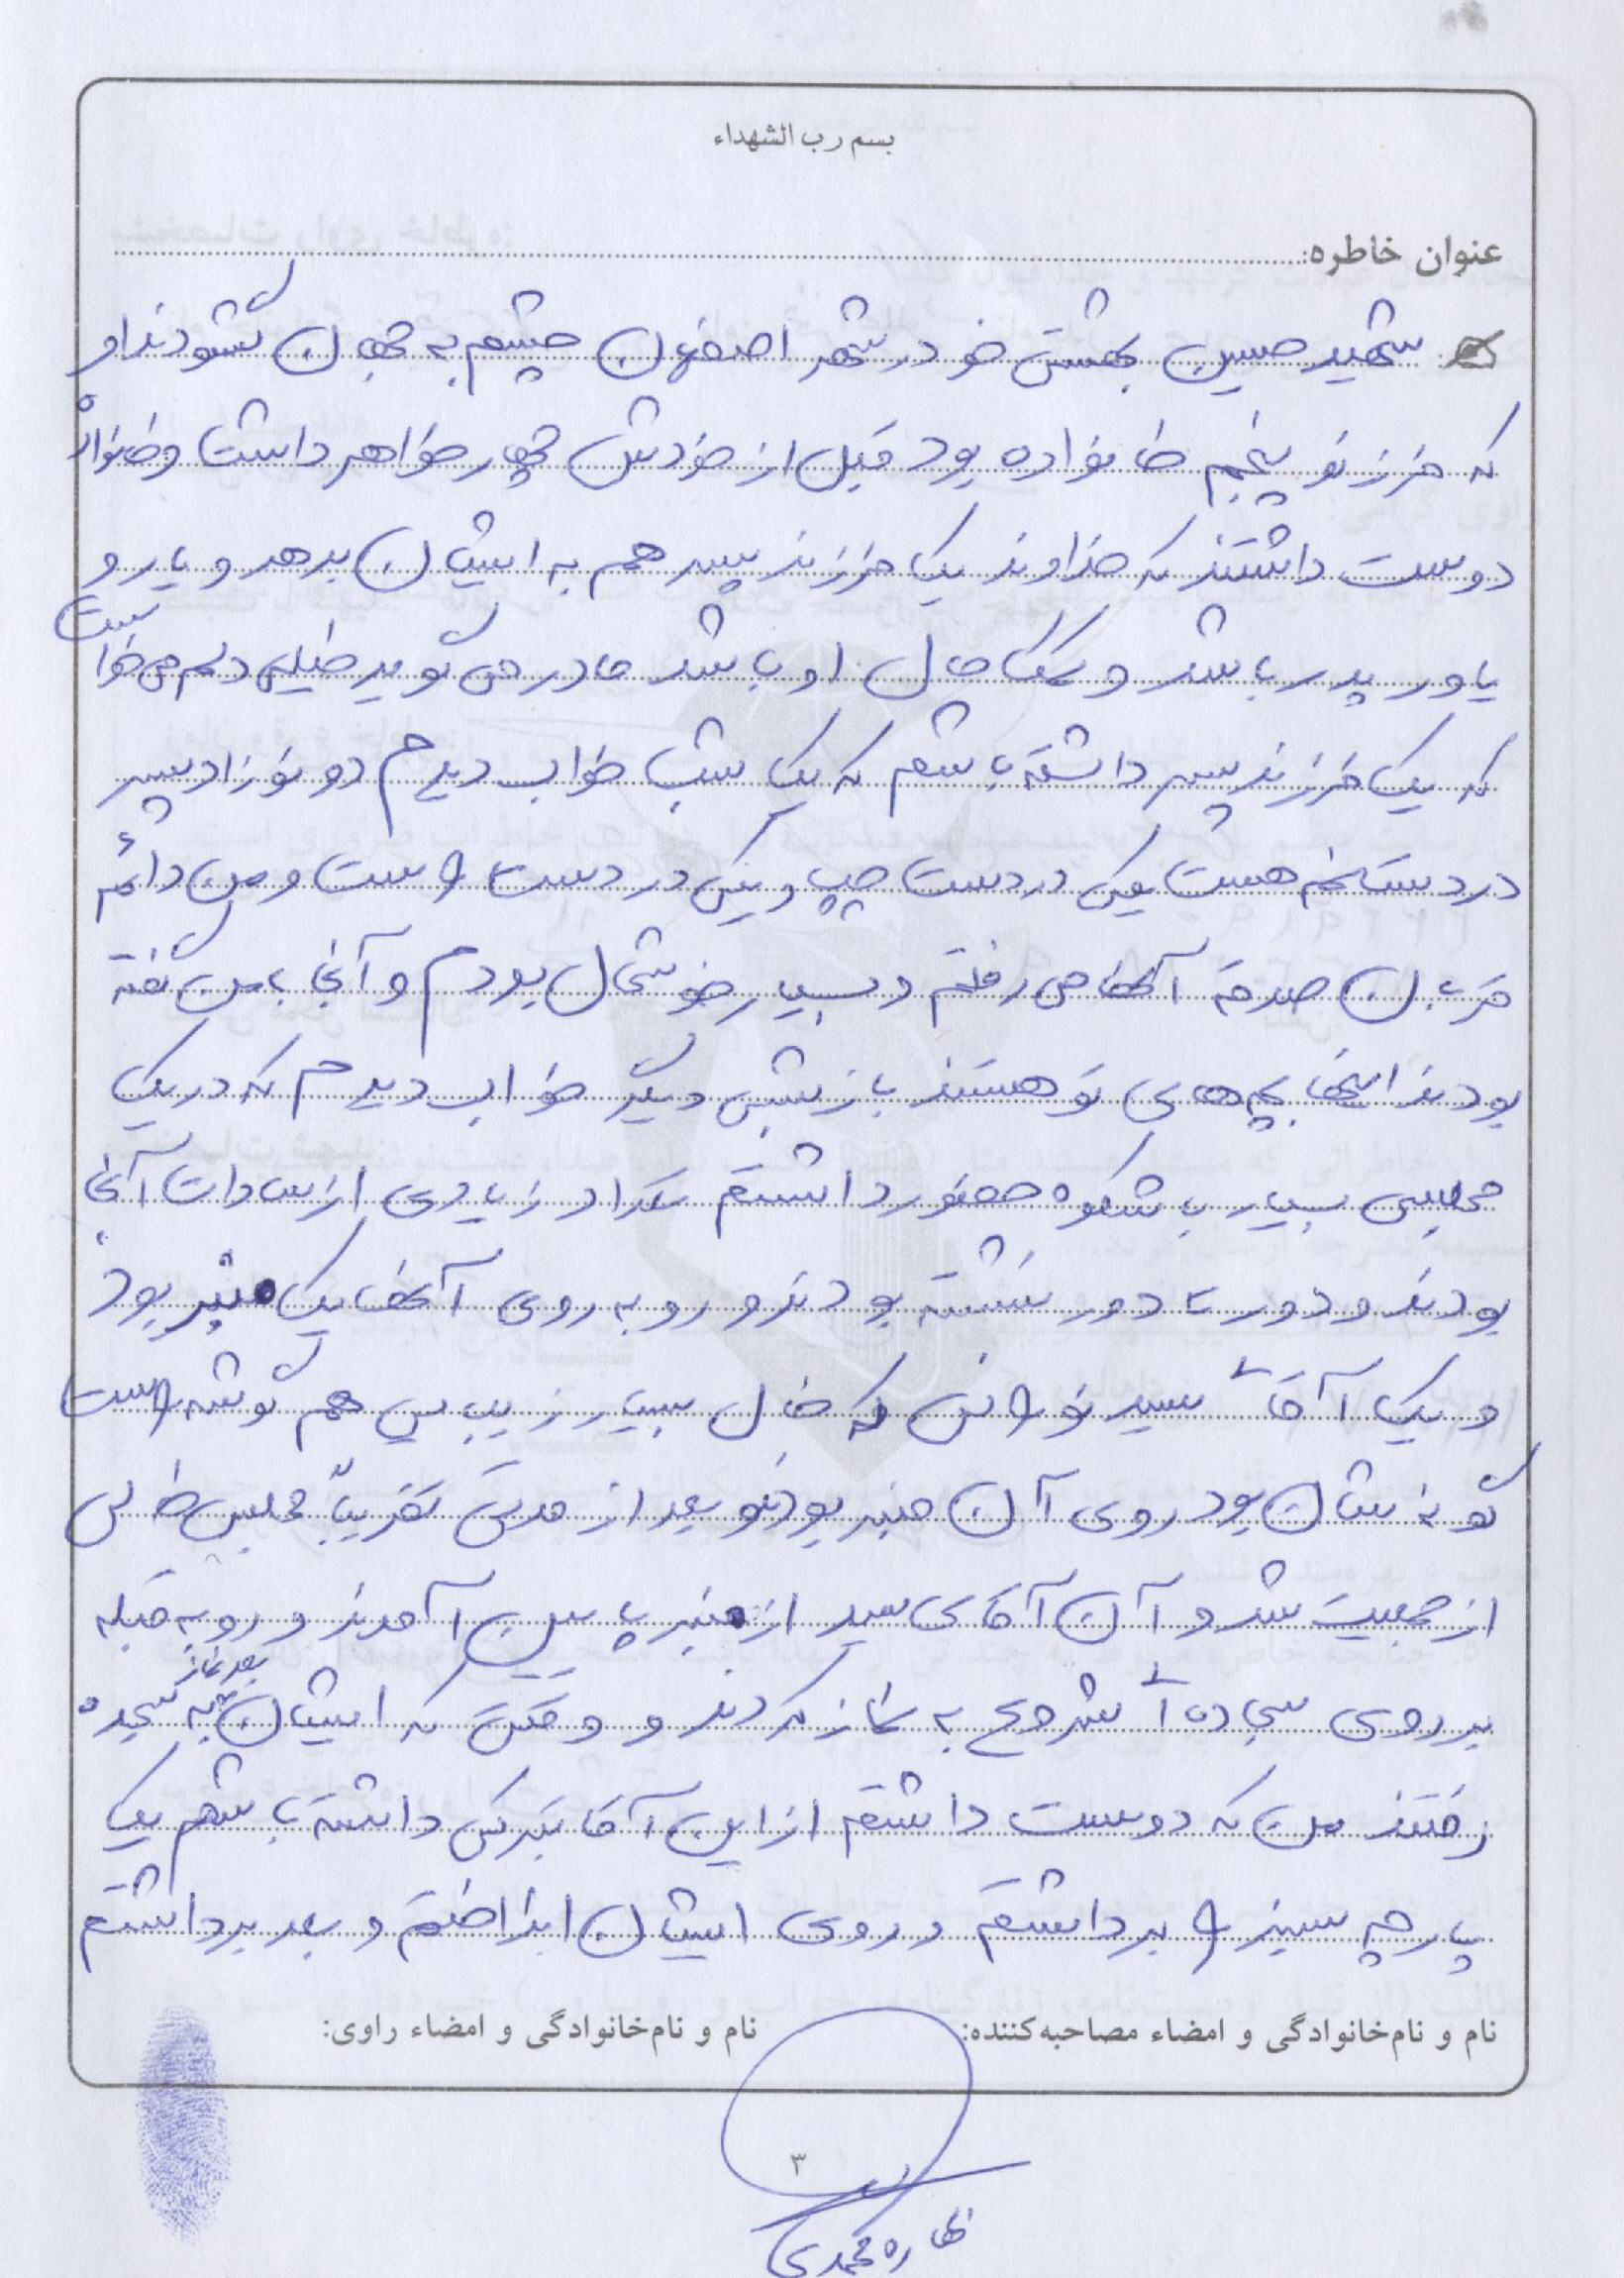 بسم رب الشهداء
عنوان خاطره:
شهید حسین بهشتی خو در شهر اصفهان چشم به جهان گشودند او
که فرزند پنجم خانواده بود قبل از خودش چهار خواهر داشت و خانواده
دوست داشتند که خداوند یک فرزند پسر هم به ایشان بدهد و یار و
یاور پدر باشد و کمک حال او باشد مادر می گوید خیلی دلم می خواست
که یک فرزند پسر داشته باشم که یک شب خواب دیدم دو نوزاد پسر
در دستانم هست یکی در دست چپ و یکی در دست راست و من دائم
قربان صدقه آنها می رفتم و بسیار خوشحال بودم و آنجا به من گفته
بودند اینها بچه های تو هستند باز شبی دیگر خواب دیدم که در یک
مجلسی بسیار با شکوه حضور داشتم تعداد زیادی از سادات آنجا
بودند و دور تا دور نشسته بودند و رو به روی آنها یک منبر بود
و یک آقای سید نورانی که خال بسیار زیبایی هم گوشه راست
گونه شان بود روی آن منبر بودند و بعد از مدتی تقریباً مجلس خالی
از جمعیت شد و آن آقای سید از منبر پایین آمدند و رو به قبله
بر روی سجاده ای شروع به نماز کردند و وقتی که ایشان بعد نماز به سجده
رفتند من که دوست داشتم از این آقا تبرکی داشته باشم یک
پارچه سبز را برداشتم و روی ایشان انداختم و بعد برداشتم
نام و نام‌خانوادگی و امضاء مصاحبه‌کننده: نام و نام‌خانوادگی و امضاء راوی:
۳
محمدی